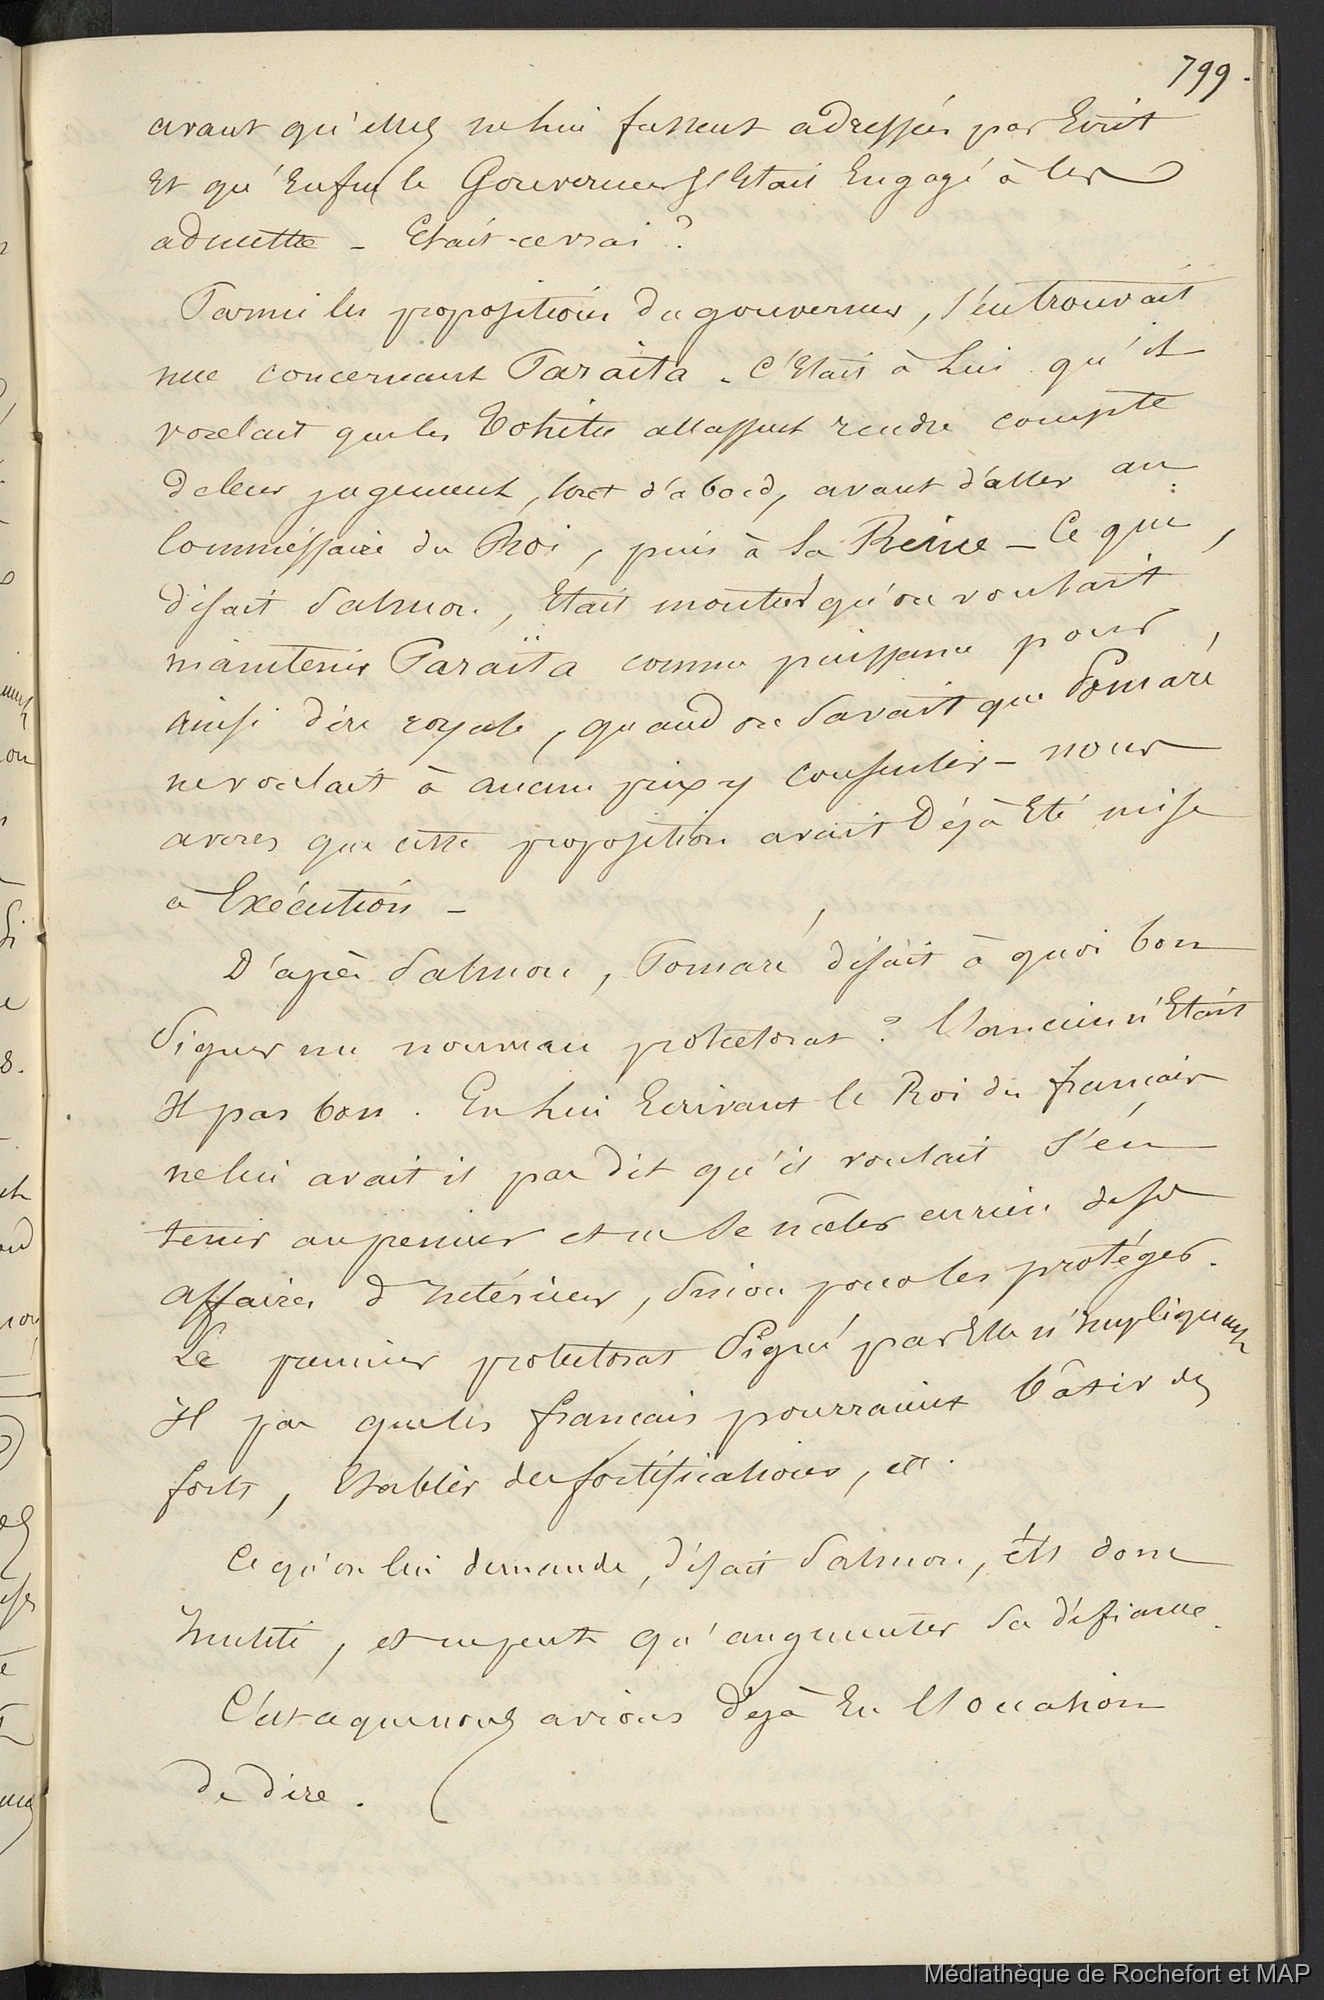 799.
avant qu'elles ne lui fussent adressées par Ecrit
Et qu'Enfin le Gouverneur S'Etait Engagé à les
admettre - Etait-ce vrai ?
Parmi les propositions du gouverneur, s'en trouvait
une concernant Paraïta - C'Etait à Lui qu'il
voulait que les Tohitu allassent rendre compte
de leur jugement, tout d'abord, avant d'aller au
Commissaire du Roi, puis à la Reine - Ce qui,
disait Salmon, Etait montrer qu'on voulait
maintenir Paraïta comme puissance pour
ainsi dire royale, quand on Savait que Pomaré
ne voulait à aucun prix y consentir - nous
avons que cette proposition avait Déjà Eté mise
à Exécution -
D'après Salmon, Pomaré disait à quoi bon
Signer un nouveau protectorat ? L'ancien n'Etait
Il pas bon. En Lui Ecrivant le Roi des français
ne lui avait il pas dit qu'il voulait S'en
tenir au premier et ne Se mêler en rien de ses
affaires d'Intérieur, Sinon pour les protéger.
Le premier protectorat Signé par Elle n'Impliquait
Il pas que les français pourraient bâtir des
forts, Etablir des fortifications, etc.
Ce qu'on lui demande, disait Salmon, est donc
Inutile, et ne peut qu'augmenter Sa défiance.
C'est ce que nous avions Déjà Eu l'occasion
de dire.
Médiathèque de Rochefort et MAP